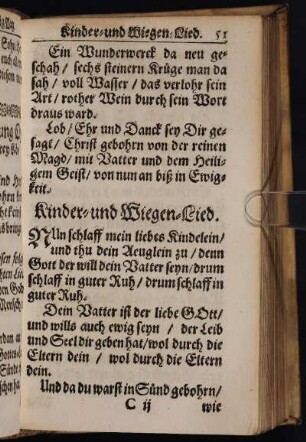 Kinder- und Wiegen-Lied. 51
Ein Wunderwerck da neu ge-
schah / sechs steinern Krüge man da
sah / voll Wasser / das verlohr sein
Art / rother Wein durch sein Wort
draus ward.
Lob / Ehr und Danck sey Dir ge-
sagt / Christ gebohrn von der reinen
Magd / mit Vatter und dem Heili-
gem Geist / von nun an biß in Ewig-
keit.
Kinder- und Wiegen-Lied.
NUn schlaff mein liebes Kindelein /
und thu dein Aeuglein zu / denn
Gott der will dein Vatter seyn / drum
schlaff in guter Ruh / drum schlaff in
guter Ruh.
Dein Vatter ist der liebe GOtt /
und wills auch ewig seyn / der Leib
und Seel dir geben hat / wol durch die
Eltern dein / wol durch die Eltern
dein.
Und da du warst in Sünd gebohrn /
C ij wie